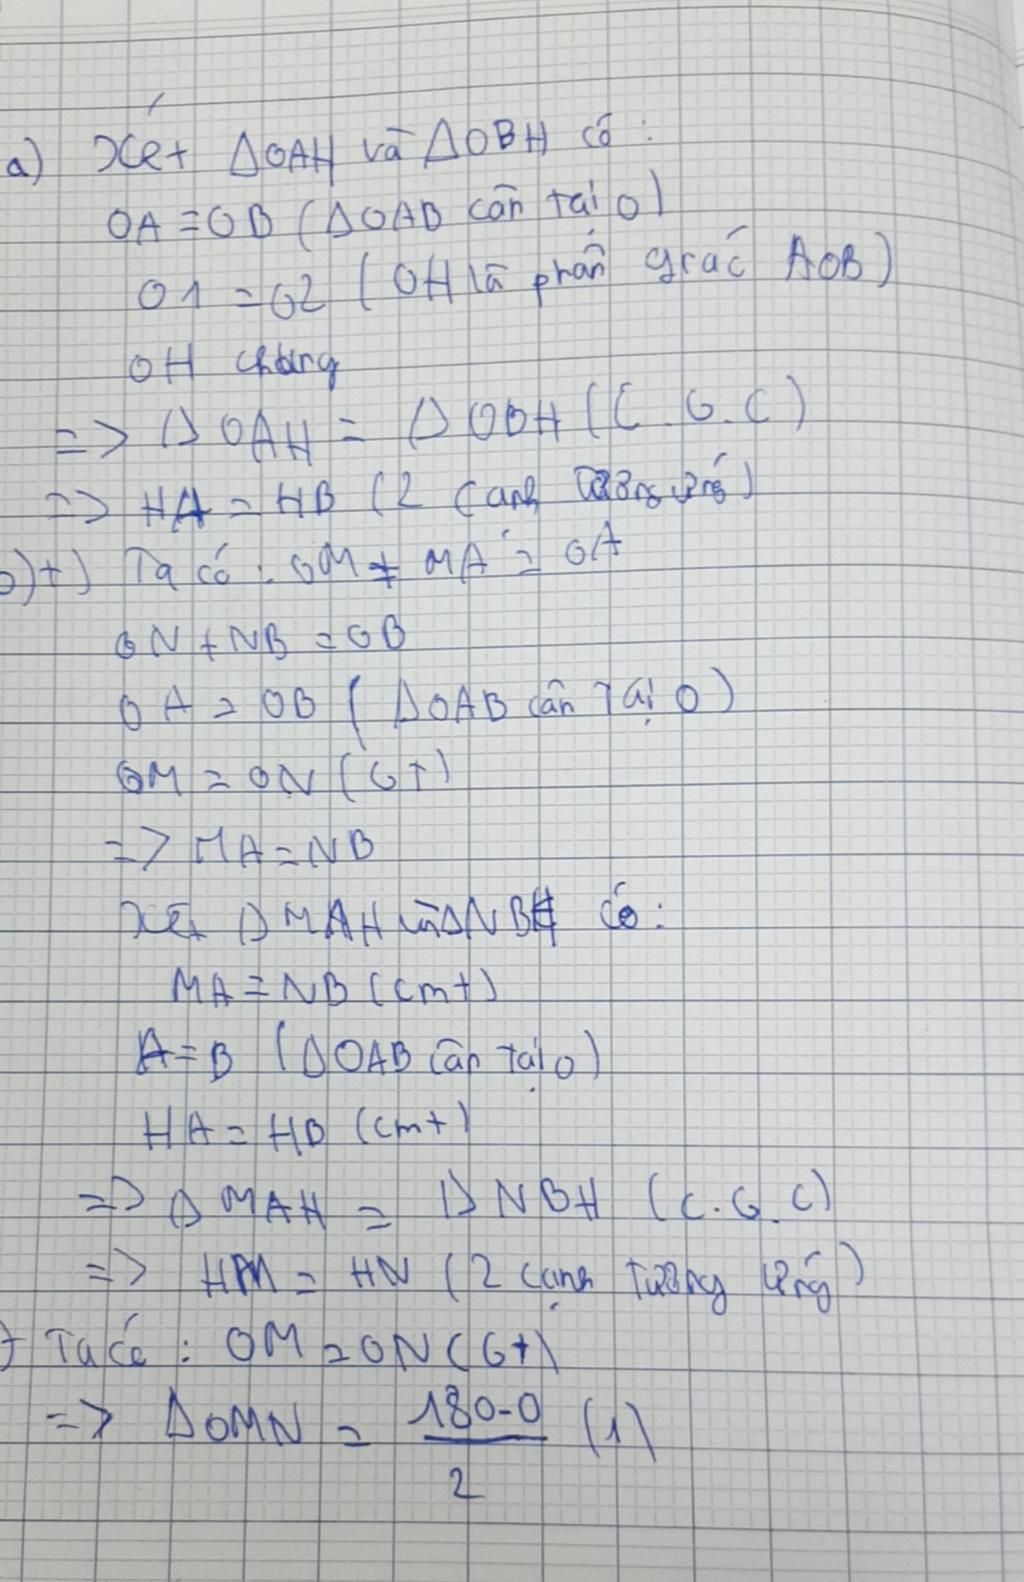 a) Xét ΔOAH và ΔOBH có :
OA = OB (ΔOAB cân tại O)
O1 = O2 (OH là phân giác AOB)
OH chung
=> ΔOAH = ΔOBH (C.G.C)
=> HA = HB (2 cạnh tương ứng)
b) +) Ta có : OM + MA = OA
ON + NB = OB
OA = OB (ΔOAB cân tại O)
OM = ON (GT)
=> MA = NB
Xét ΔMAH và ΔNBH có :
MA = NB (cmt)
A = B (ΔOAB cân tại O)
HA = HB (cmt)
=> ΔMAH = ΔNBH (C.G.C)
=> HM = HN (2 cạnh tương ứng)
+ Ta có : OM = ON (Gt)
=> ΔOMN = \frac{180-O}{2} (1)